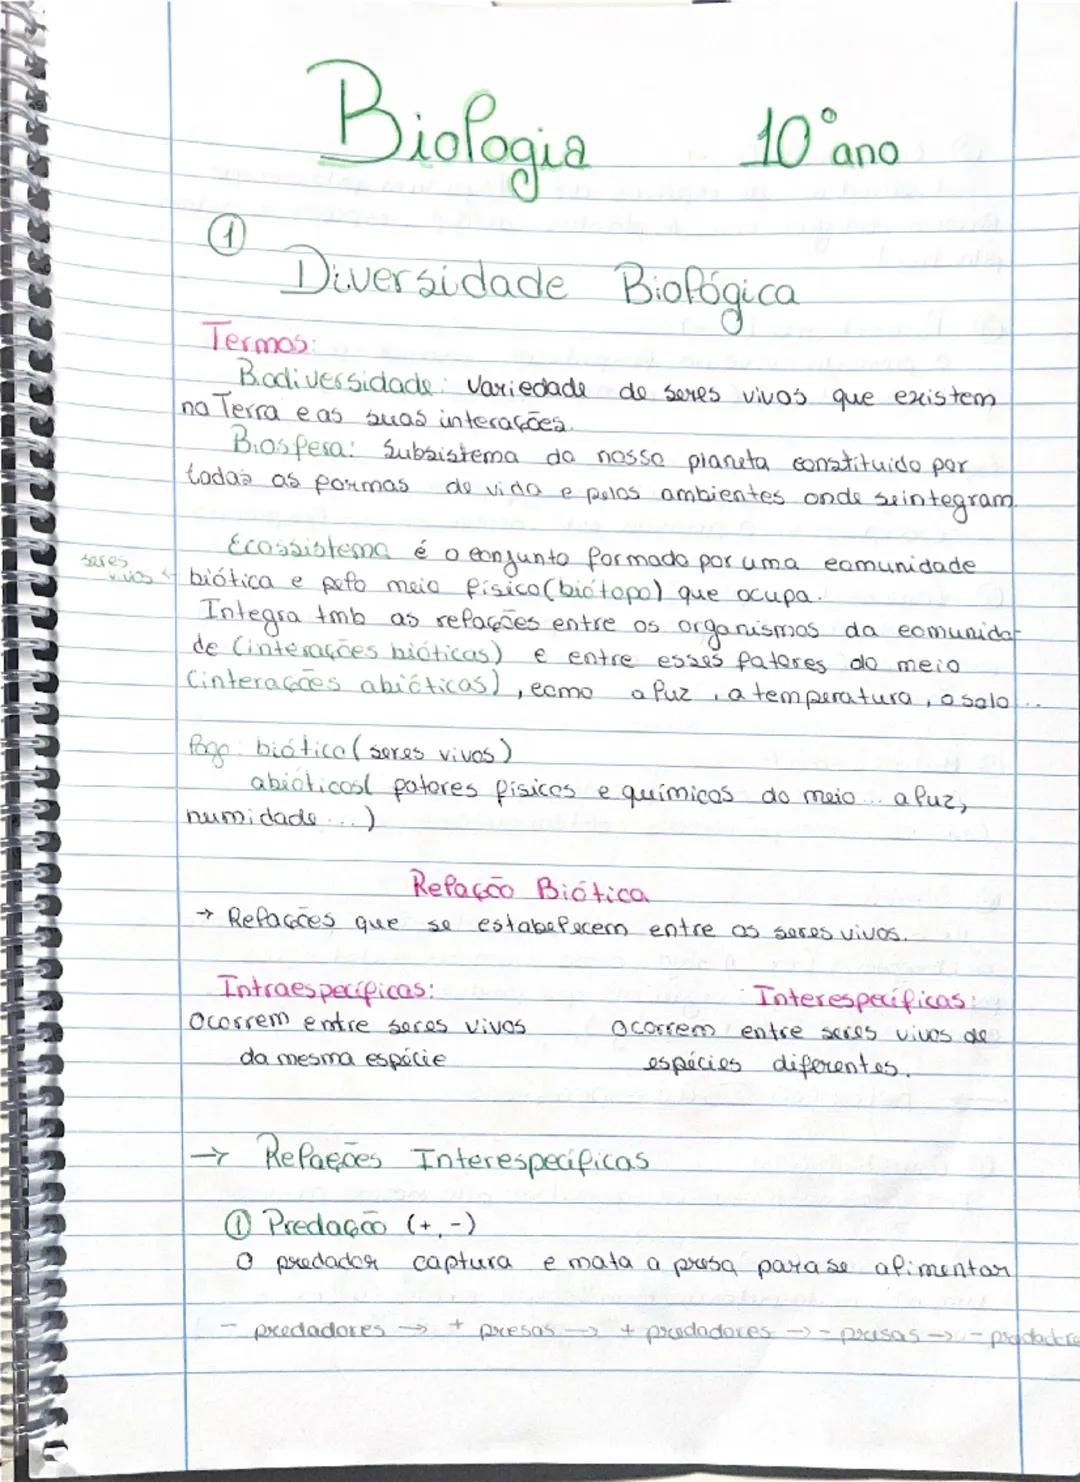 Biologia 10º ano
①
Diversidade Biológica
Termos:
Biodiversidade: Variedade de seres vivos que existem
na Terra e as suas interações.
Biosfera: Subsistema do nosso planeta constituido por
todas as formas de vida e pelos ambientes onde se integram.
Ecossistema é o conjunto formado por uma comunidade
seres vivos
biótica e pelo meio físico (biótopo) que ocupa.
Integra tmb as relações entre os organismos da comunida-
de (interações bióticas) e entre esses fatores do meio
(interações abióticas), como a luz, a temperatura, o solo...
logo: biótico (seres vivos)
abióticos( fatores físicos e químicos do meio... a luz,
humidade...)
Relação Biótica
→ Relações que se estabelecem entre os seres vivos.
Intraespecíficas: Interespecíficas:
Ocorrem entre seres vivos ocorrem entre seres vivos de
da mesma espécie espécies diferentes.
→ Relações Interespecíficas
① Predação (+, -)
O predador captura e mata a presa para se alimentar
- predadores → + presas → + predadores → - presas → - predadore